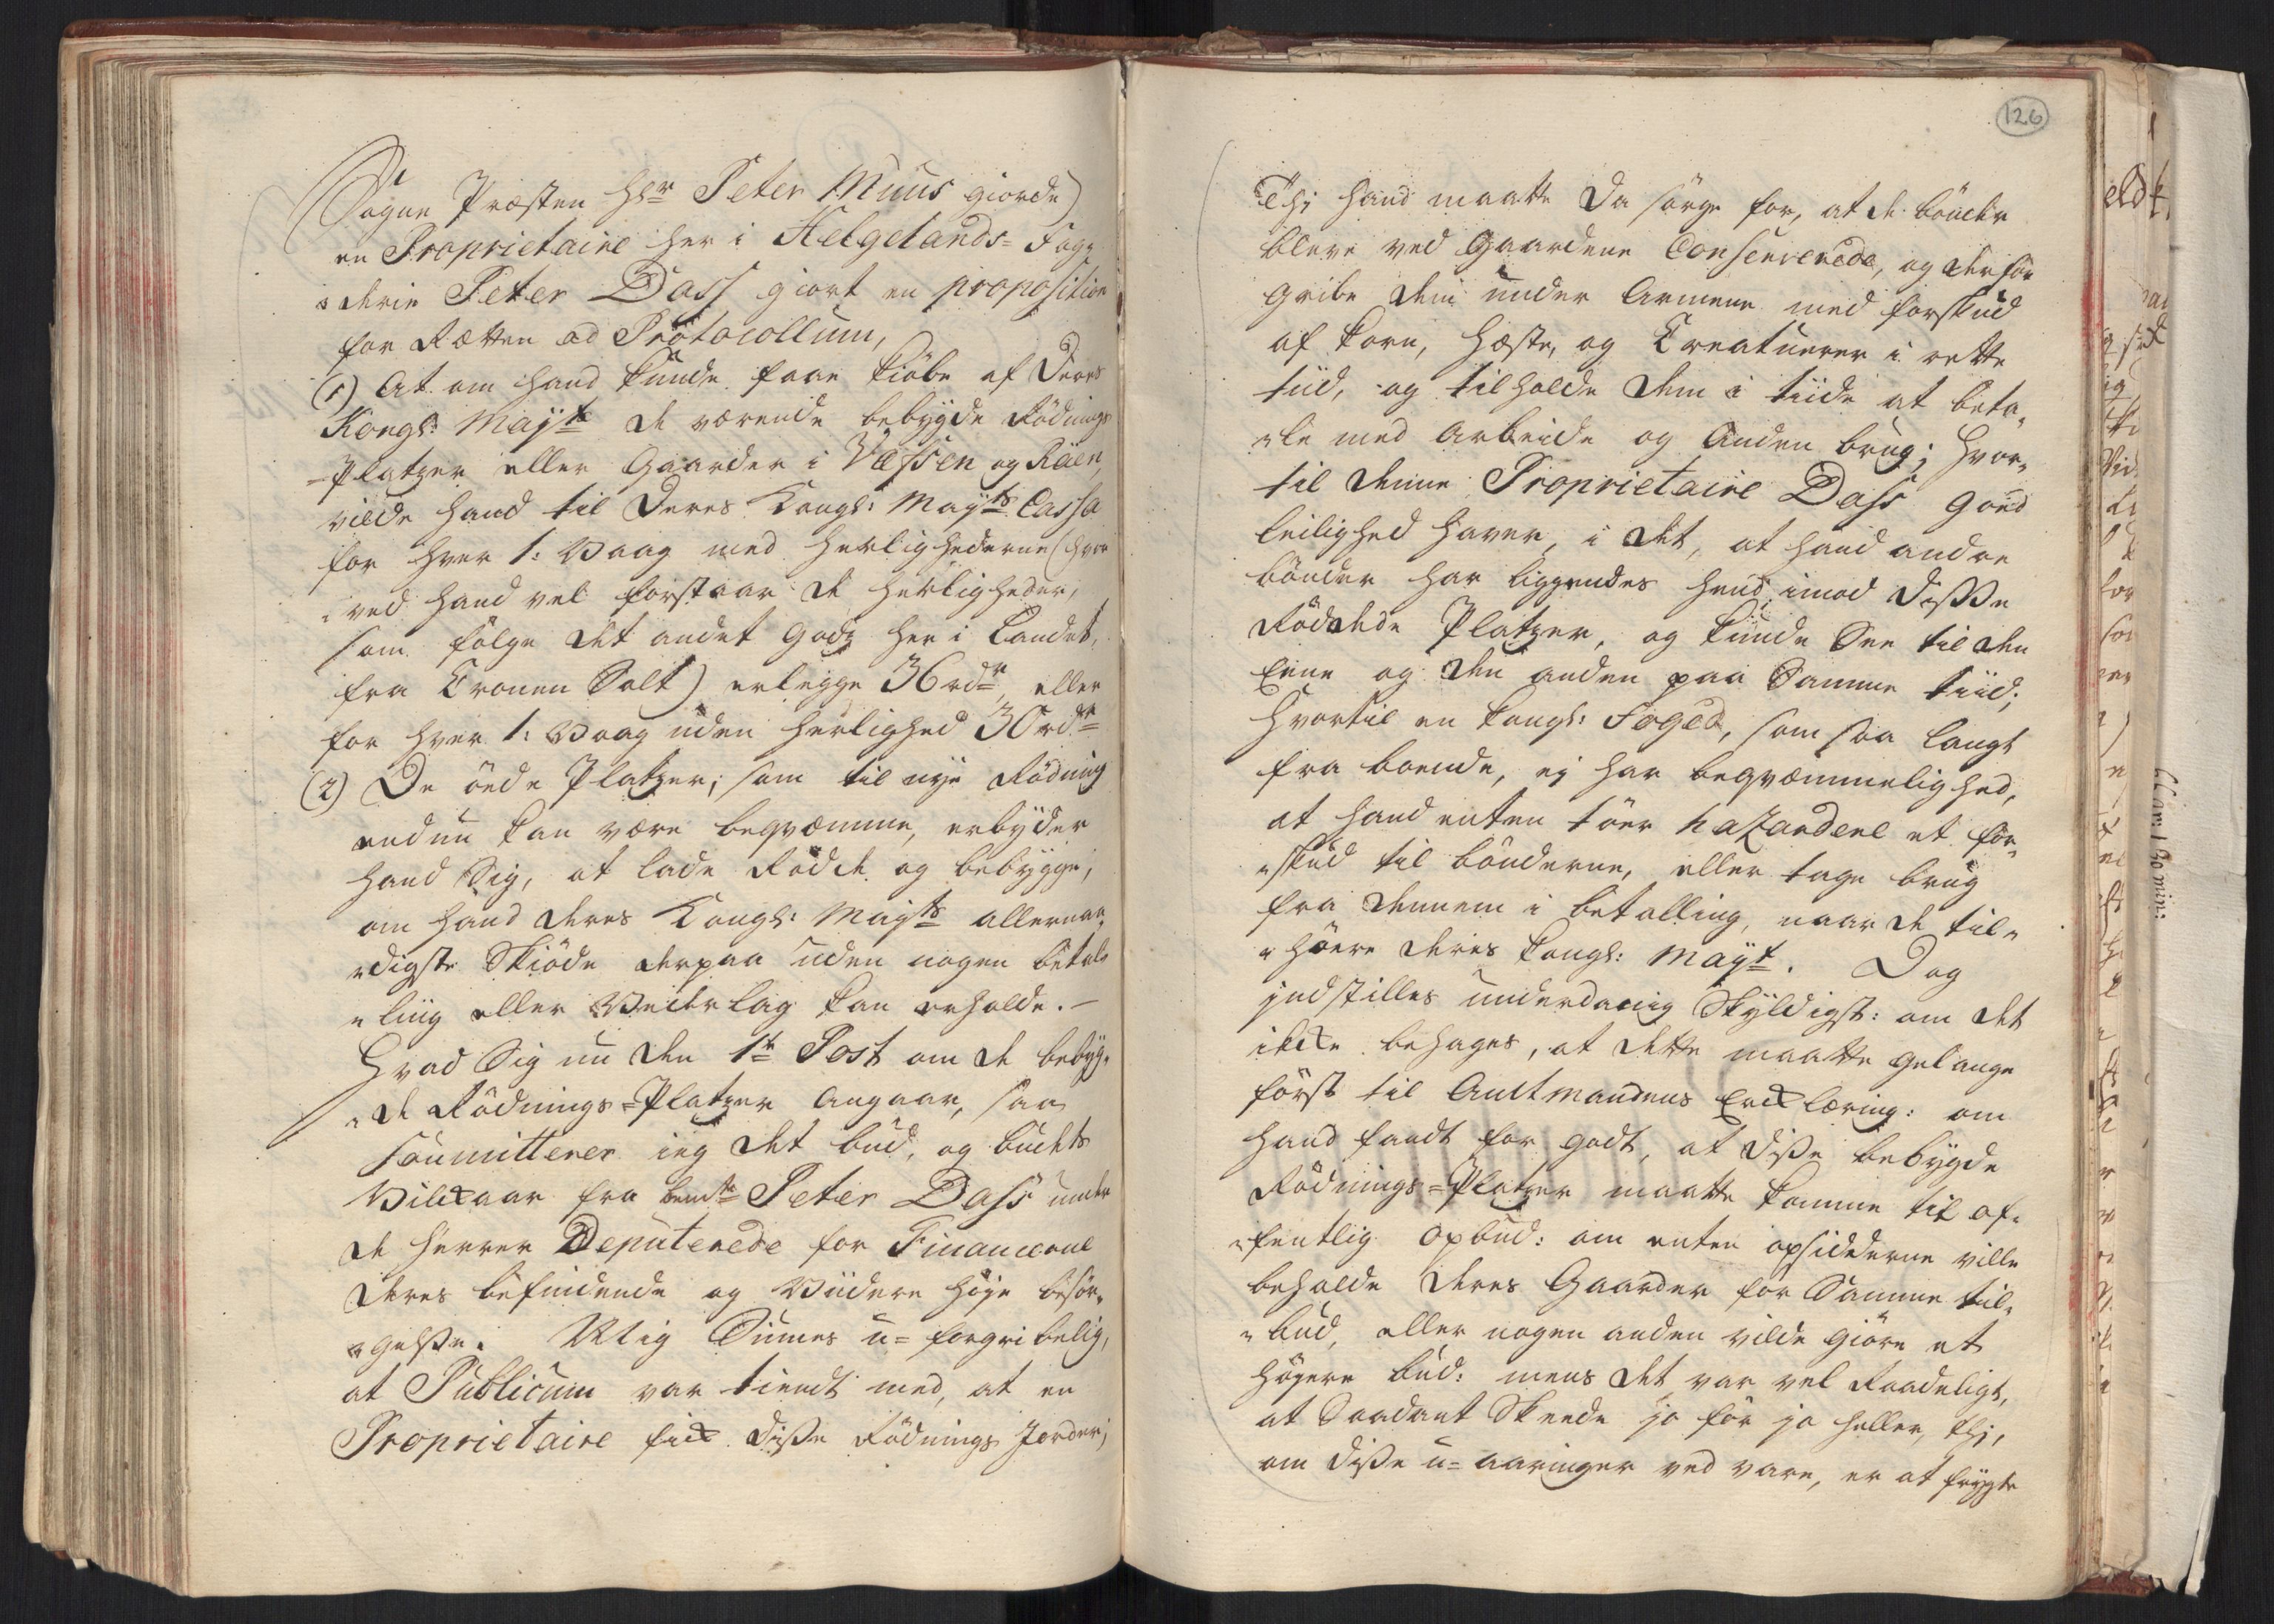 Sogne Præsten Hr Peter Muus giorde)
en Proprietaire her i Helgelands-Fog-
derie Peter Dass giort en proposition
for Retten ad Protocollum,
(1) At om hand kunde faae kiöbe af Deres
Kongl: Mayts de værende bebygde Rödnings
-Platzer eller Gaarder i Vefsen og Raen,
vilde hand til Deres Kongl: Mayts Cassa
for hver 1: Vaag med herlighederne (hvor
ved hand vel forstaar de herligheder,
som fölge det andet Godz her i Landet,
fra Cronen Solt) erlegge 36 rdr, eller
for hver 1: Vaag uden herlighed 30 rdr
(2) De öede Platzer, som til nye Rödning
endnu kan være beqvæmme, erbyder
hand Sig, at lade Rödde og bebygge,
om hand Deres Kongl: Mayts allernaa-
digste Skiöde derpaa uden nogen betal-
ling eller Vederlag kan erholde. -
Hvad Sig nu den 1te Post om de bebyg-
de Rödnings-Platzer angaar, saa
soumitterer ieg det bud, og budets
Vilckaar fra bemte Peter Dass under
de Herrer Deputerede for Financerne
deres befindende og Viidere höye besör-
gelsse. Mig Siunes u-forgribelig,
at Publicum var tiendt med, at en
Proprietaire fick disse Rödnings Jorder,
126
Thi hand maatte da sörge for, at de bönder
bleve ved Gaardene Conserverede, og derfor
gribe dem under Armene med forskud
af Korn, Hæste, og Creaturer i rette
tiid, og tilholde dem i tiide at beta-
le med Arbeide og Anden brug; Hvor-
til denne Proprietaire Dass goed
leilighed haver, i det, at hand andre
bönder har liggendes hend imod disse
Röddede Platzer, og kunde See til den
Eene og den anden paa Samme tiid;
Hvortil en Kongl: Foged, som saa langt
fra boende, ej har beqvæmmelighed,
at hand enten töer hazardere et for-
skud til bönderne, eller tage brug
fra dennem i betalling, naar de til-
höere deres Kongl: Mayt. Dog
jndstilles underdanig Skyldigst: om det
icke behages, at dette maatte gelange
först til Ambtmandens Ercklæring: om
hand fandt for godt, at disse bebygde
Rödnings-Platzer maatte komme til of-
fentlig Opbud: om enten opsidderne ville
beholde deres Gaarder for Samme til-
bud, eller nogen anden vilde giöre et
höyere bud: mens det var vel Raadeligt,
at Saadant Skeede jo för jo heller, thi,
om disse u-aaringer ved vare, er at frygte